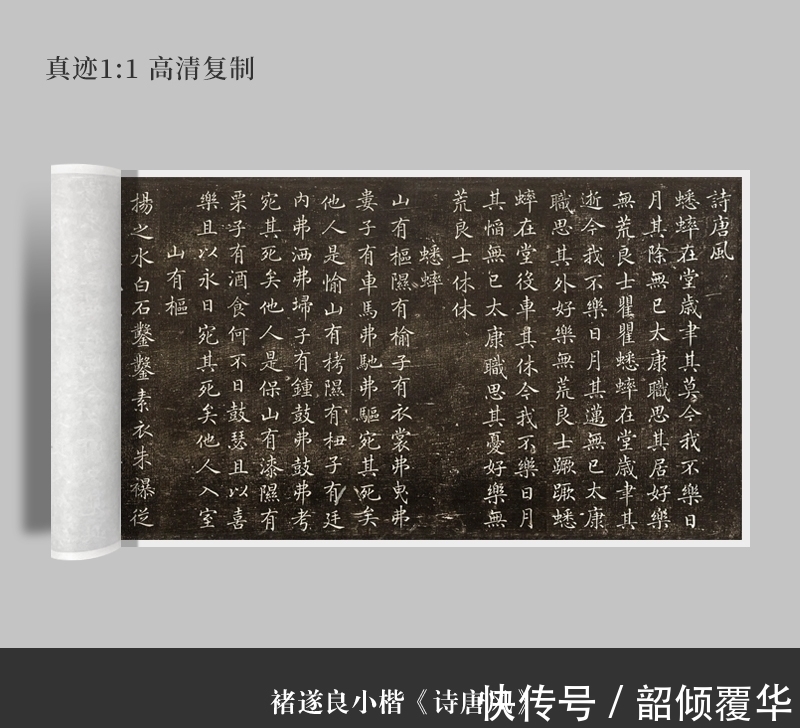 真迹1:1 高清复制
詩唐風
蟋蟀在堂歲聿其莫今我不樂日
月其除無已太康職思其居好樂
無荒良士瞿瞿蟋蟀在堂歲聿其
逝今我不樂日月其邁無已太康
職思其外好樂無荒良士蹶蹶蟋
蟀在堂役車其休今我不樂日月
其慆無已太康職思其憂好樂無
荒良士休休
蟋蟀
山有樞隰有榆子有衣裳弗曳弗
婁子有車馬弗馳弗驅宛其死矣
他人是愉山有栲隰有杻子有廷
內弗洒弗埽子有鍾鼓弗鼓弗考
宛其死矣他人是保山有漆隰有
栗子有酒食何不日鼓瑟且以喜
樂且以永日宛其死矣他人入室
山有樞
揚之水白石鑿鑿素衣朱襮從
褚遂良小楷《诗唐风》
快传号 / 韶倾覆华